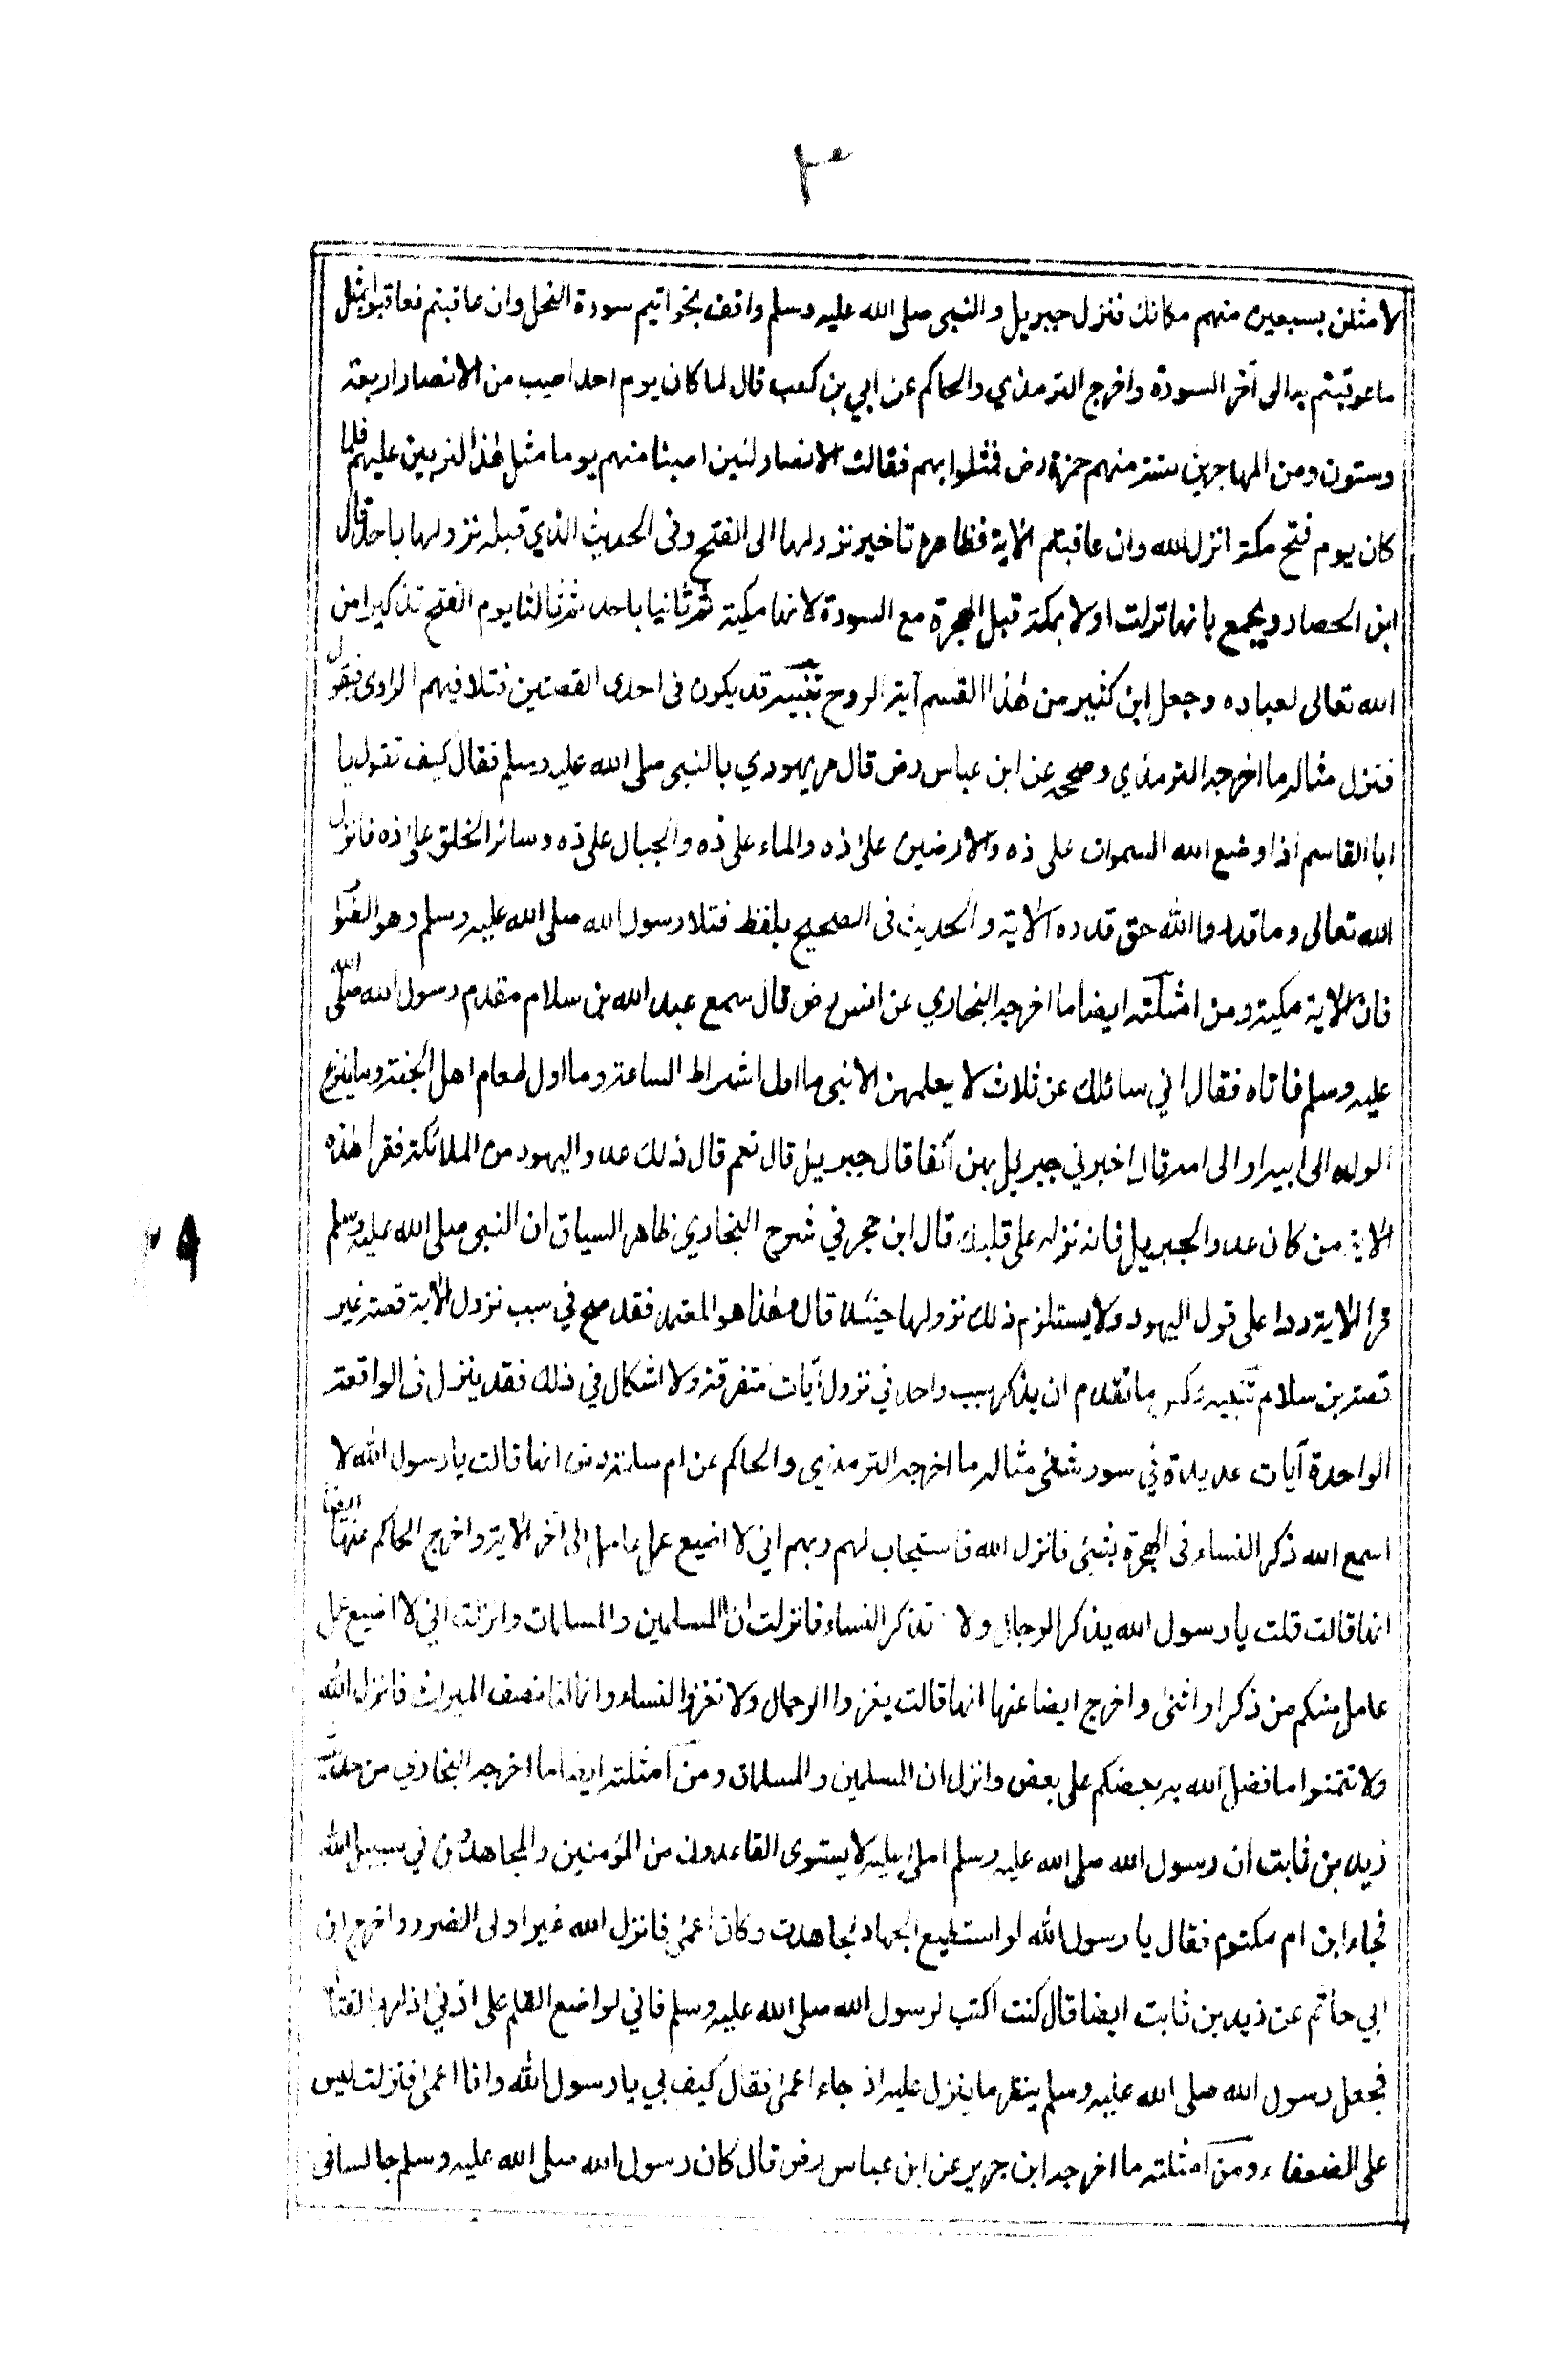 ٣٠
لامثلن بسبعين منهم مكانك فنزل جبريل والنبى صلى الله عليه وسلم واقف بخواتيم سورة النحل وان عاقبتم فعاقبوا بمثل
ما عوقبتم به الى آخر السورة واخرج الترمذي والحاكم عن ابي بن كعب قال لما كان يوم احد اصيب من الانصار اربعة
وستون ومن المهاجرين ستة منهم حمزة رض فمثلوا بهم فقالت الانصار لئين اصبنا منهم يوما مثل هٰذا لنربين عليهم فلما
كان يوم فتح مكة انزل الله وان عاقبتم الاٰية فظاهره تاخير نزولها الى الفتح وفى الحديث الذي قبله نزولها باحد قال
ابن الحصار ويجمع بانها نزلت اولا بمكة قبل الهجرة مع السورة لانها مكية ثم ثانيا باحد ثم ثالثا يوم الفتح تذكيرا من
الله تعالى لعباده وجعل ابن كثير من هٰذا القسم آية الروح تنبيه قد يكون فى احدى القصتين فتلا فيهم الراوى فيقول
فنزل مثاله ما اخرجه الترمذي وصححه عن ابن عباس رض قال مر يهودي بالنبى صلى الله عليه وسلم فقال كيف تقول يا
ابا القاسم اذا وضع الله السموات على ذه والارضين على ذه والماء على ذه والجبال على ذه وسائر الخلق على ذه فانزل
الله تعالى وما قدروا الله حق قدره الاٰية والحديث فى الصحيح بلفظ فتلا رسول الله صلى الله عليه وسلم وهو الصوا
فان الاٰية مكية ومن امثلته ايضا ما اخرجه البخاري عن انس رض قال سمع عبد الله بن سلام مقدم رسول الله صلى الله
عليه وسلم فاتاه فقال اني سائلك عن ثلاث لا يعلمهن الا نبى ما اول اشراط الساعة وما اول طعام اهل الجنة وما ينزع
الولد الى ابيه او الى امه قال اخبرني جبريل بهن آنفا قال جبريل قال نعم قال ذلك عدو اليهود من الملائكة فقرأ هٰذه
الاٰية من كان عدوا لجبريل فانه نزله على قلبك قال ابن حجر في شرح البخاري ظاهر السياق ان النبى صلى الله عليه وسلم
قرأ الاٰية ردا على قول اليهود ولا يستلزم ذلك نزولها حينئذ قال وهٰذا هو المعتمد فقد صح في سبب نزول الاٰية قصة غير
قصة بن سلام تنبيه عكس ما تقدم ان يذكر سبب واحد في نزول آيات متفرقة ولا اشكال في ذلك فقد ينزل فى الواقعة
الواحدة آيات عديدة في سور شتى مثاله ما اخرجه الترمذي والحاكم عن ام سلمة رض انها قالت يا رسول الله لا
اسمع الله ذكر النساء فى الهجرة بشئ فانزل الله فاستجاب لهم ربهم اني لا اضيع عمل عامل الى آخر الاٰية واخرج الحاكم عنها ايضا
انها قالت قلت يا رسول الله يذكر الرجال ولا تذكر النساء فانزلت ان المسلمين والمسلمات وانزلت اني لا اضيع عمل
عامل منكم من ذكر او انثى واخرج ايضا عنها انها قالت يغزوا الرجال ولا تغزوا النساء وانما لنا نصف الميراث فانزل الله
ولا تتمنوا ما فضل الله به بعضكم على بعض وانزل ان المسلمين والمسلمات ومن امثلته ايضا ما اخرجه البخاري من حديث
زيد بن ثابت ان رسول الله صلى الله عليه وسلم املى عليه لا يستوى القاعدون من المؤمنين والمجاهدون في سبيل الله
فجاء ابن ام مكتوم فقال يا رسول الله لو استطيع الجهاد لجاهدت وكان اعمى فانزل الله غير اولى الضرر واخرج ابن
ابي حاتم عن زيد بن ثابت ايضا قال كنت اكتب لرسول الله صلى الله عليه وسلم فاني لواضع القلم على اذني اذ امر بالقتال
فجعل رسول الله صلى الله عليه وسلم ينظر ما ينزل عليه اذ جاء اعمى فقال كيف بي يا رسول الله وانا اعمى فنزلت ليس
على الضعفاء ومن امثلته ما اخرجه ابن جرير عن ابن عباس رض قال كان رسول الله صلى الله عليه وسلم جالسا فى